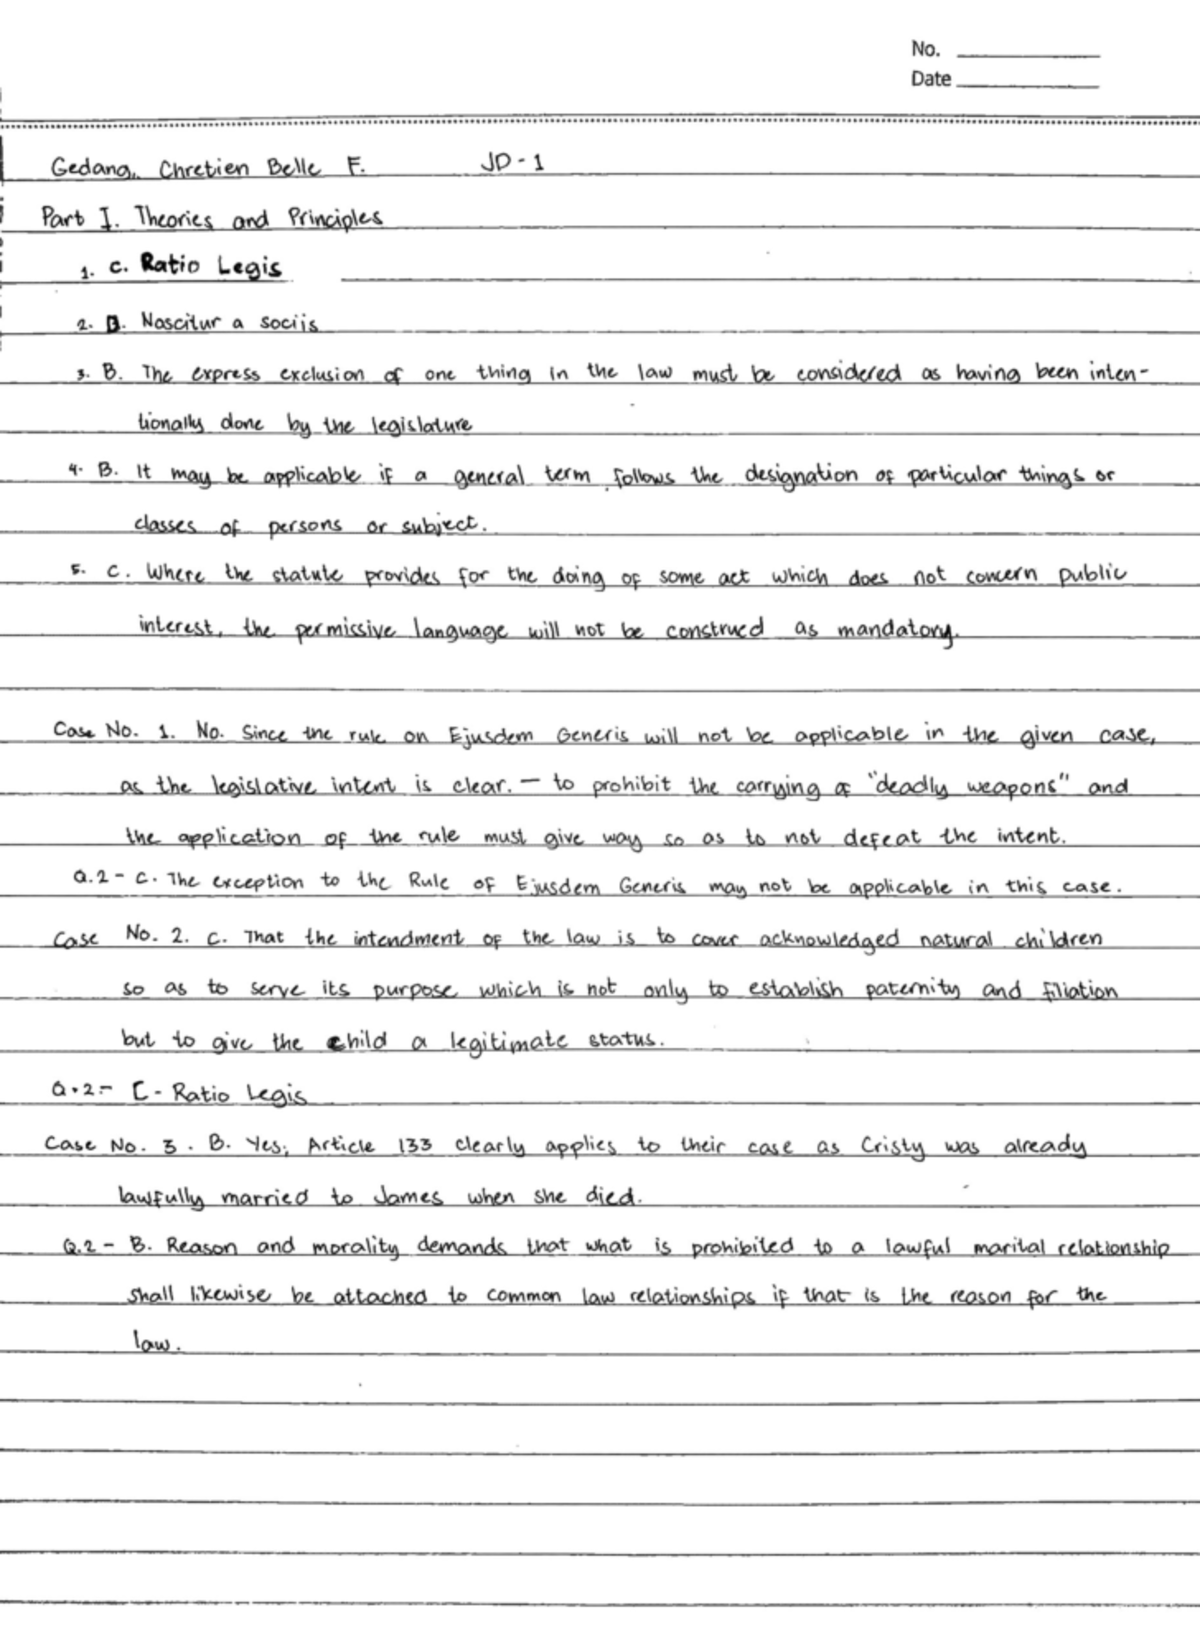 No.
Date
Gedang, Chretien Belle F. JD-1
Part I. Theories and Principles
1. C. Ratio Legis
2. B. Noscitur a sociis
3. B. The express exclusion of one thing in the law must be considered as having been inten-
tionally done by the legislature
4. B. It may be applicable if a general term follows the designation of particular things or
classes of persons or subject.
5. C. Where the statute provides for the doing of some act which does not concern public
interest, the permissive language will not be construed as mandatory.
Case No. 1. No. Since the rule on Ejusdem Generis will not be applicable in the given case,
as the legislative intent is clear. — to prohibit the carrying of "deadly weapons" and
the application of the rule must give way so as to not defeat the intent.
Q.2 - C. The exception to the Rule of Ejusdem Generis may not be applicable in this case.
Case No. 2. C. That the intendment of the law is to cover acknowledged natural children
so as to serve its purpose which is not only to establish paternity and filiation
but to give the child a legitimate status.
Q.2 - C - Ratio Legis
Case No. 3. B. Yes, Article 133 clearly applies to their case as Cristy was already
lawfully married to James when she died.
Q.2 - B. Reason and morality demands that what is prohibited to a lawful marital relationship
shall likewise be attached to common law relationships if that is the reason for the
law.